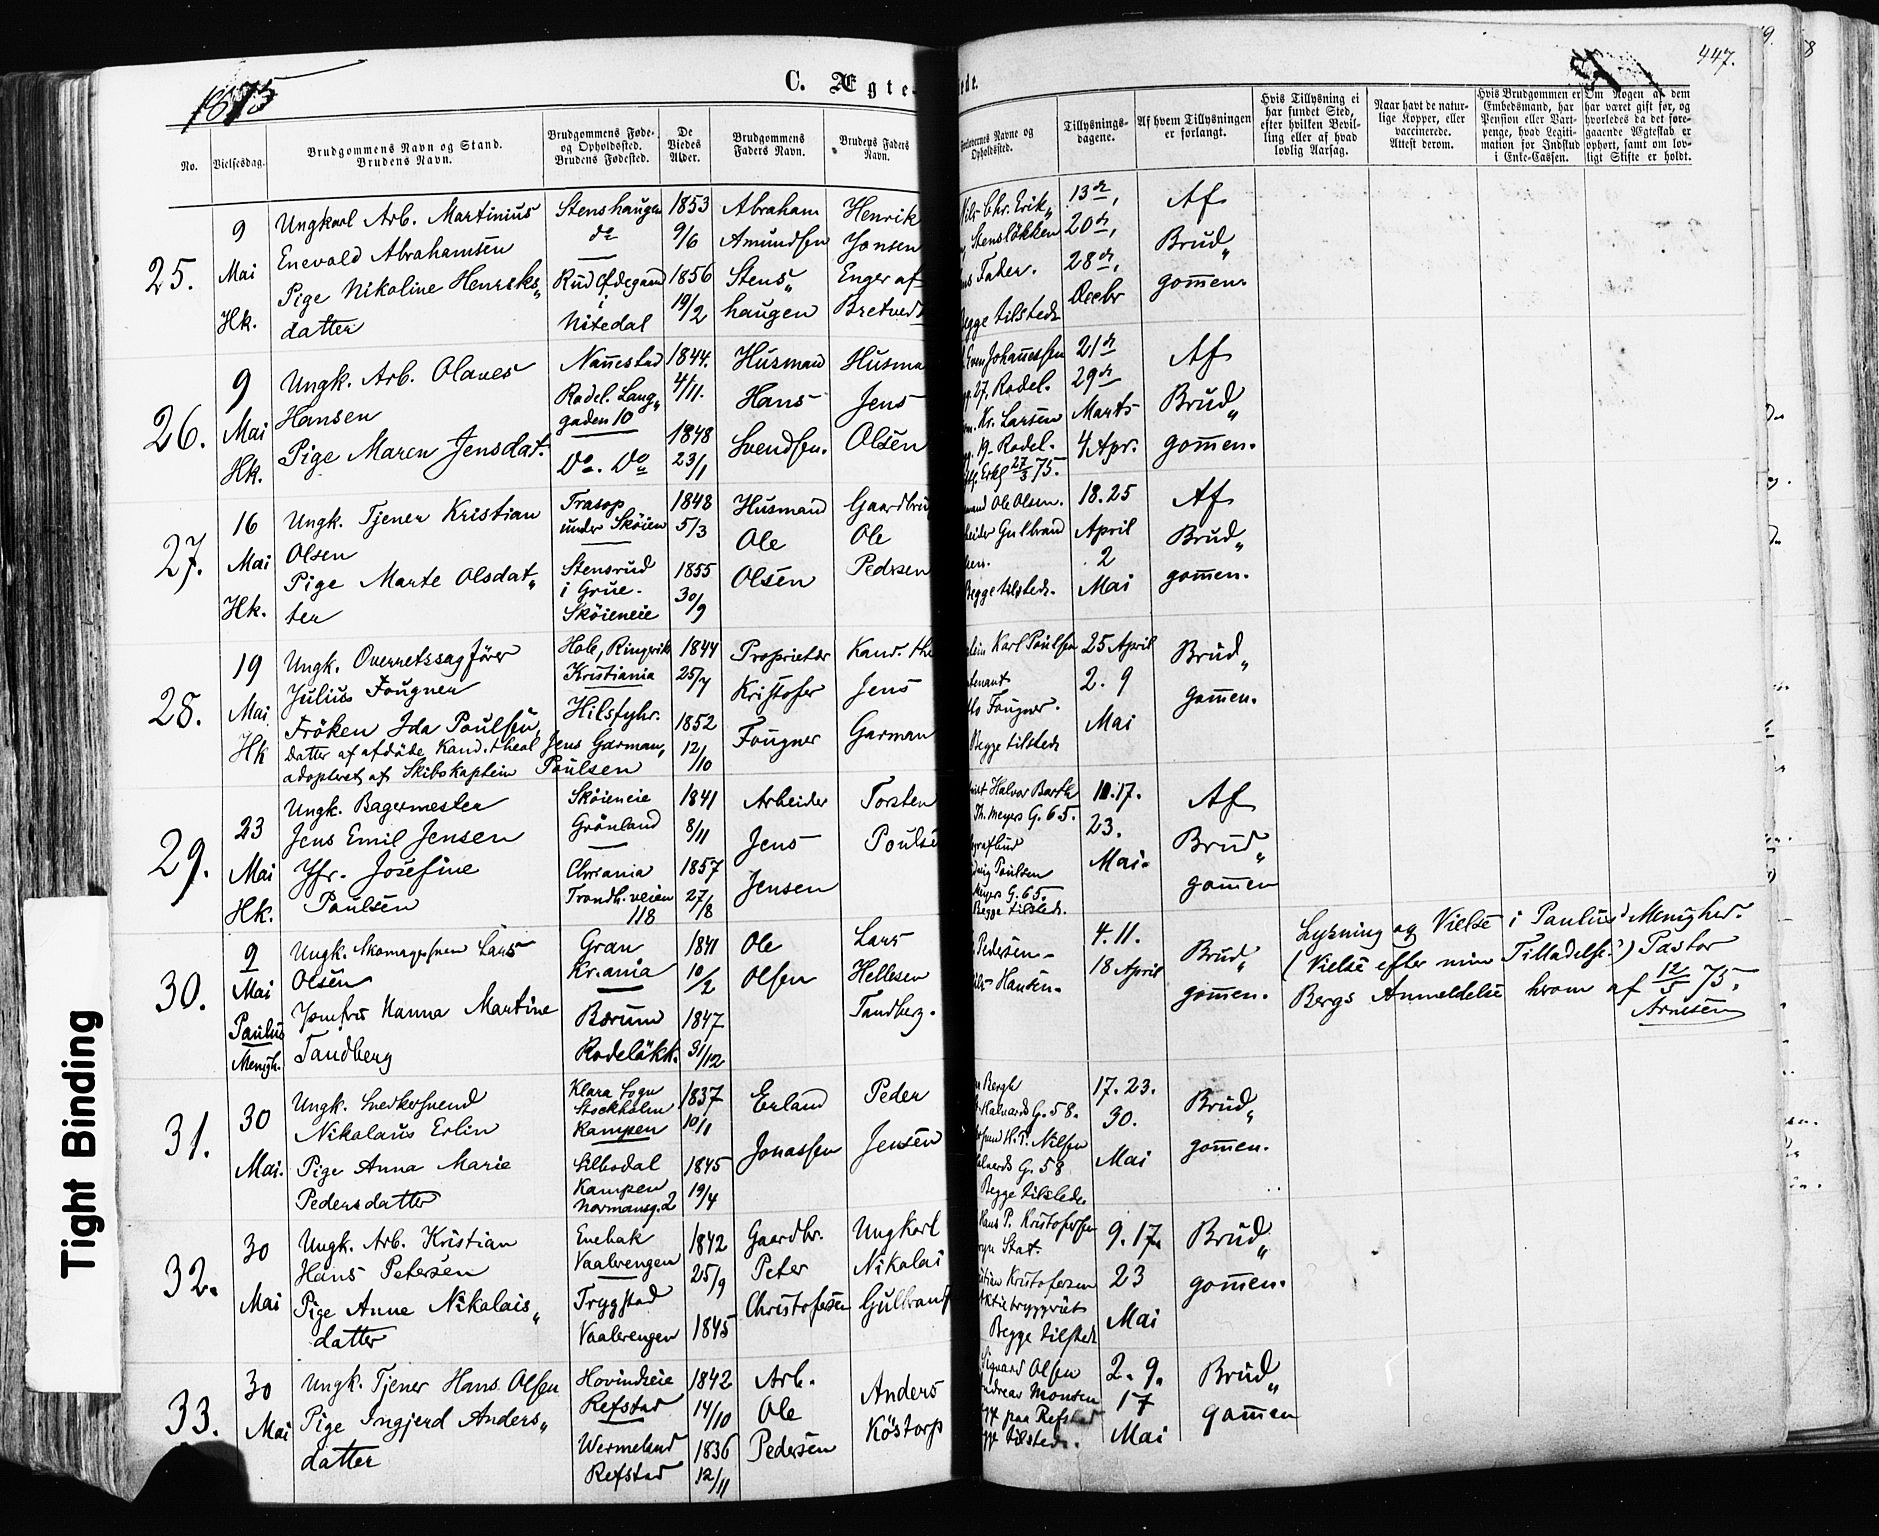 1875
C. Ægte
447.
No.
Vielsesdag.
Brudgommens Navn og Stand.
Brudens Navn.
Brudgommens Føde-
og Opholdssted.
Brudens Fødested.
De
Viedes
Alder.
Brudgommens
Faders Navn.
Brudens Faders
Navn.
Forlovernes Navne og
Opholdssted.
Tillysnings-
dagene.
Af hvem Tillysningen
er forlangt.
Hvis Tillysning ei
har fundet Sted,
efter hvilken Bevil-
ling eller af hvad
lovlig Aarsag.
Naar havt de natur-
lige Kopper, eller
vaccinerede.
Attest derom.
Hvis Brudgommen er
Embedsmand, har
Pension eller Vart-
penge, hvad Legiti-
mation for Indskud
i Enke-Cassen.
Om Nogen af dem
har været gift før, og
hvorledes da det fore-
gaaende Ægteskab er
ophørt, samt om lov-
ligt Skifte er holdt.
25.
9
Mai
Hk.
Ungkarl Arb. Martinius
Enevold Abrahamsen
Pige Nikoline Henriks„
datter
Stenshaugen
do
Rud Ødegaard
i
Nitedal
1853
9/6
1856
19/2
Abraham
Amundsen
Stens„
haugen
Henrik
Jonsen
Enger af
Nils Chr. Erik„
Stensløkken
Fader.
Begge tilstede
13de,
20de,
28de,
Decbr
Af
Brud„
gommen.
26.
9
Mai
Hk.
Ungk. Arb. Olaves
Hansen
Pige Maren Jensdat.
Nannestad
Rodel. Lang„
gaden 10
Do. Do
1844.
4/11.
1848
23/1
Husmand
Hans
Svendsen.
Husma
Jens
Olsen
Even Johannessen
27, Rodel.
Kr. Larsen
9. Rodel.
27/3 75.
21de
29de
Marts
4 Apr.
Af
Brud„
gommen.
27.
16
Mai
Hk.
Ungk. Tjener Kristian
Olsen
Pige Marte Olsdat„
ter
Trasop
under Skøien
Stensrud
i Grue.
Skøieneie
1848
5/3
1855
30/9
Husmand
Ole
Olsen
Gaardbru
Ole
Pedersen
Ole Olsen.
Gulbrand
Begge tilstede.
18. 25
April
2
Mai
Af
Brud„
gommen.
28.
19
Mai
Hk
Ungk. Overretssagfører
Julius Fougner
Frøken Ida Poulsen,
datter af afdøde Kand. theol Jens Garman,
adopteret af Skibskaptein Poulsen
Hole, Ringerik
Kristiania
Hilsfyhr.
1844
25/7
1852
12/10
Proprietær
Kristofer
Fougner
Kand. the
Jens
Garman
Karl Poulsen
Fougner.
Begge tilstede
25 April
2. 9
Mai
Brud„
gommen.
29.
23
Mai
Hk.
Ungk. Bagermester
Jens Emil Jensen
Jfr. Josefine
Paulsen
Skøieneie
Grønland
Chrania
Trondh. veien
118
1841
8/11
1857
27/8
Arbeider
Jens
Jensen
Torsten
Poulse
Halvor Barth
Th. Meyers G. 65.
Poulsen
Meyers G. 65.
Begge tilstede.
10. 17.
23.
Mai.
Af
Brud„
gommen
30.
9
Mai
Paulus
Menigh.
Ungk. Skomagersvend Lars
Olsen
Jomfru Hanna Martine
Tandberg
Gran
Kr.ania
Bærum
Rodeløkk.
1841
10/2
1847
31/12
Ole
Olsen
Lars
Hellesen
Tandberg.
Pedersen.
Hansen.
4. 11.
18 April
Brud„
gommen.
Lysning og Vielse i Paulus' Menighed.
(Vielse efter min Tilladelse) Pastor
Bergs Anmeldelse herom af 12/5 75.
Arnesen
31.
30
Mai.
Ungk. Snedkersvend
Nikolaus Erlin
Pige Anna Marie
Pedersdatter
Klara Sogn
Stockholm
Kampen
Silbodal
Kampen
Normansg. 2
1837
10/1
1845
19/4
Erland
Jonassen
Peder
Jensen
Bergh
G. 58.
H. P. Nilsen
G. 58
Begge tilstede.
17. 23.
30.
Mai
Brud„
gommen.
32.
30
Mai
Ungk. Arb. Kristian
Hans Petersen
Pige Anne Nikolais„
datter
Enebak
Vaalerengen
Trygstad
Vaalerengen
1842
25/9
1845
Gaardbr.
Peter
Christofersen
Ungkarl
Nikolai
Gulbrands
Hans P. Kristofersen
Stat.
Kristofersen
Aktiebryggeriet
Begge tilstede
9. 17.
23
Mai
Brud„
gommen.
33.
30
Mai
Ungk. Tjener Hans Olsen
Pige Ingjerd Anders„
datter
Hovindseie
Refstad
Wermeland
Refstad
1842
14/10
1836
12/11
Arb.
Ole
Pedersen
Anders
Köstorp
Sigvard Olsen
Andreas Monsen
paa Refstad
tilstede.
2. 9.
17
Mai
Brud„
gommen
Tight Binding